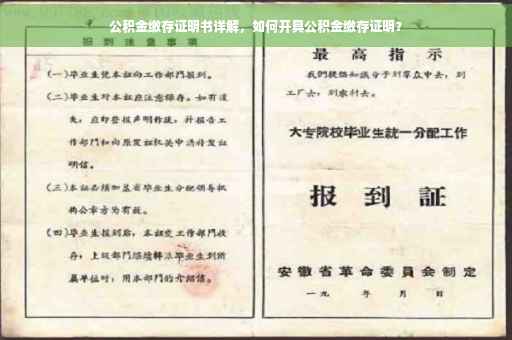 公积金缴存证明书详解，如何开具公积金缴存证明？
报到注意事项
(一)毕业生凭本证向工作部门报到。
(二)毕业生对本证应注意保存。如有遗
失，应即登报声明作废，并报告工
作部门和向原发证机关申请补发证
明信。
(三)本证必须加盖省毕业生分配领导机
构公章方为有效。
(四)毕业生报到后，本证交工作部门收
存；上级部门
毕业生到所
属单位时，用本部门的介绍信。
最高指示
我们提倡知识分子到群众中去，到
工厂去，到农村去。
大专院校毕业生统一分配工作
报到证
安徽省革命委员会制定
一九 年 月 日